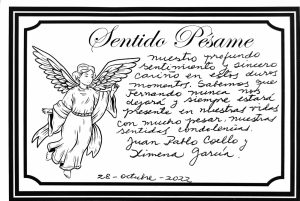 Sentido Pésame
nuestro profundo
sentimiento y sincero
cariño en estos duros
momentos. Sabemos que
Fernando nunca nos
dejará y siempre estará
presente en nuestras vidas
con mucho pesar, nuestras
sentidas condolencias.
Juan Pablo Coello y
Ximena García.
28-octubre-2022